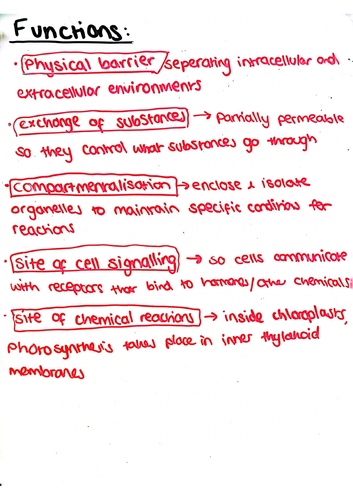 Functions:
· Physical barrier / seperating intracellular and
extracellular environments
· exchange of substances → partially permeable
so they control what substances go through
· compartmentalisation → enclose & isolate
organelles to maintain specific conditions for
reactions
· site of cell signalling → so cells communicate
with receptors that bind to hormones/other chemicals
· site of chemical reactions → inside chloroplasts,
photosynthesis takes place in inner thylakoid
membranes